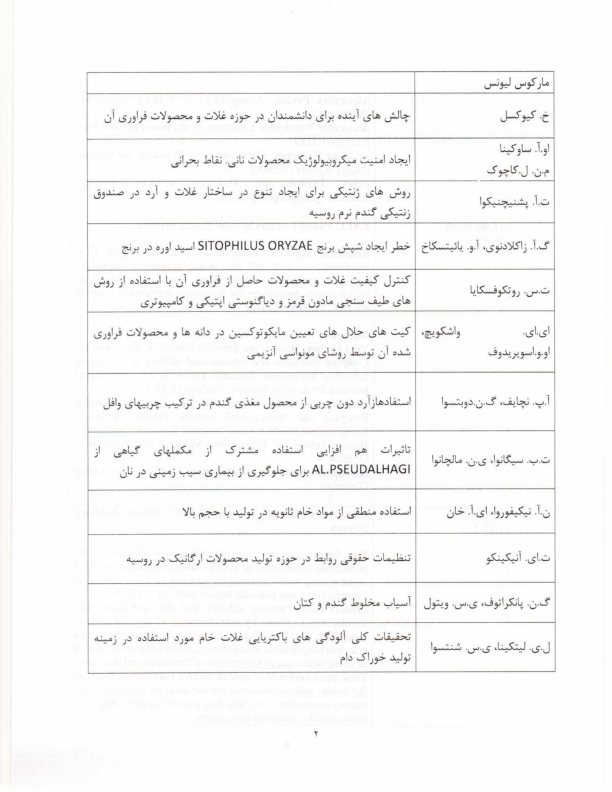 مارکوس لیونس
خ. کیوکسل
چالش های آینده برای دانشمندان در حوزه غلات و محصولات فراوری آن
او.آ. ساوکینا
م.ن. ل.کاچوک
ایجاد امنیت میکروبیولوژیک محصولات نانی. نقاط بحرانی
ت.آ. پشنیچنیکوا
روش های ژنتیکی برای ایجاد تنوع در ساختار غلات و آرد در صندوق
زنتیکی گندم نرم روسیه
گ.آ. زاکلادنوی، آ.و. یائیتسکاخ
خطر ایجاد شپش برنج SITOPHILUS ORYZAE اسید اوره در برنج
ت.س. روتکوفسکایا
کنترل کیفیت غلات و محصولات حاصل از فراوری آن با استفاده از روش
های طیف سنجی مادون قرمز و دیاگنوستی اپتیکی و کامپیوتری
ای.ای. واشکویچ،
او.و.اسویریدوف
کیت های حلال های تعیین مایکوتوکسین در دانه ها و محصولات فراوری
شده آن توسط روشای مونواسی آنزیمی
آ.پ. نچایف، گ.ن.دوبتسوا
استفادهازآرد دون چربی از محصول مغذی گندم در ترکیب چربیهای وافل
ت.ب. سیگانوا، ی.ن. مالچانوا
تاثیرات هم افزایی استفاده مشترک از مکملهای گیاهی از
AL.PSEUDALHAGI برای جلوگیری از بیماری سیب زمینی در نان
ن.آ. نیکیفوروا، ای.آ. خان
استفاده منطقی از مواد خام ثانویه در تولید با حجم بالا
ت.ای. آنیکینکو
تنظیمات حقوقی روابط در حوزه تولید محصولات ارگانیک در روسیه
گ.ن. پانکراتوف، ی.س. ویتول
آسیاب مخلوط گندم و کتان
ل.ی. لیتکینا، ی.س. شنتسوا
تحقیقات کلی آلودگی های باکتریایی غلات خام مورد استفاده در زمینه
تولید خوراک دام
۲